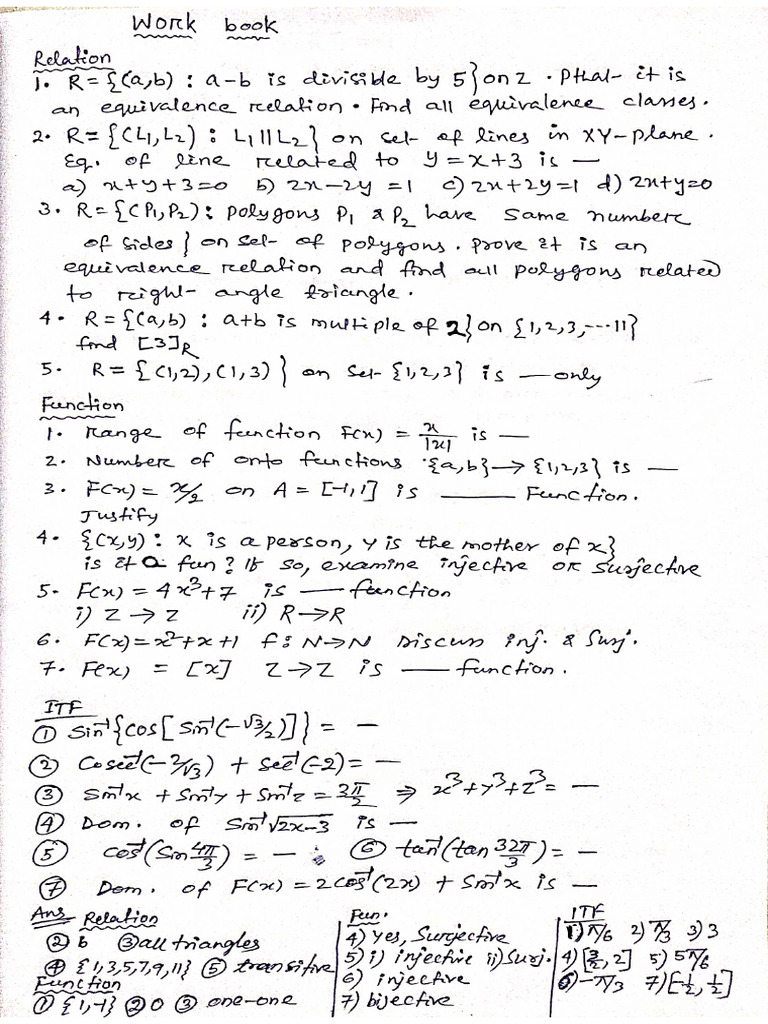 Work book
Relation
1. R = {(a,b) : a-b is divisible by 5} on Z . P that it is
an equivalence relation. Find all equivalence classes.
2. R = {(L₁, L₂) : L₁ || L₂} on set of lines in XY-plane.
Eq. of line related to y = x+3 is —
a) x+y+3=0 b) 2x-2y=1 c) 2x+2y=1 d) 2x+y=0
3. R = {(P₁, P₂) : polygons P₁ & P₂ have same number
of sides} on set of polygons. prove it is an
equivalence relation and find all polygons related
to right-angle triangle.
4. R = {(a,b) : a+b is multiple of 2} on {1,2,3,----11}
find [3]R
5. R = {(1,2), (1,3)} on set {1,2,3} is — only
Function
1. Range of function F(x) = x/|x| is —
2. Number of onto functions {a,b} → {1,2,3} is —
3. F(x) = x/2 on A = [-1,1] is —— Function.
Justify
4. {(x,y) : x is a person, y is the mother of x}
is it a fun? If so, examine injective or surjective
5. F(x) = 4x³+7 is — function
i) Z → Z ii) R → R
6. F(x) = x²+x+1 f: N→N Discuss inj. & Surj.
7. F(x) = [x] Z → Z is — function.
ITF
① Sin⁻¹{cos[Sin⁻¹(-√3/2)]} = —
② Cosec⁻¹(-2/√3) + Sec⁻¹(-2) = —
③ Sin⁻¹x + Sin⁻¹y + Sin⁻¹z = 3π/2 ⇒ x³+y³+z³ = —
④ Dom. of Sin⁻¹√2x-3 is —
⑤ cos⁻¹(Sin 4π/3) = — ⑥ tan⁻¹(tan 32π/3) = —
⑦ Dom. of F(x) = 2cos⁻¹(2x) + Sin⁻¹x is —
Ans Relation
② b ③ all triangles
④ {1,3,5,7,9,11} ⑤ transitive
Function
① {1,-1} ② 0 ③ one-one
Fun.
4) Yes, Surjective
5) i) injective ii) Surj.
6) injective
7) bijective
ITF
1) π/6 2) π/3 3) 3
4) [3/2, 2] 5) 5π/6
6) -π/3 7) [-1/2, 1/2]